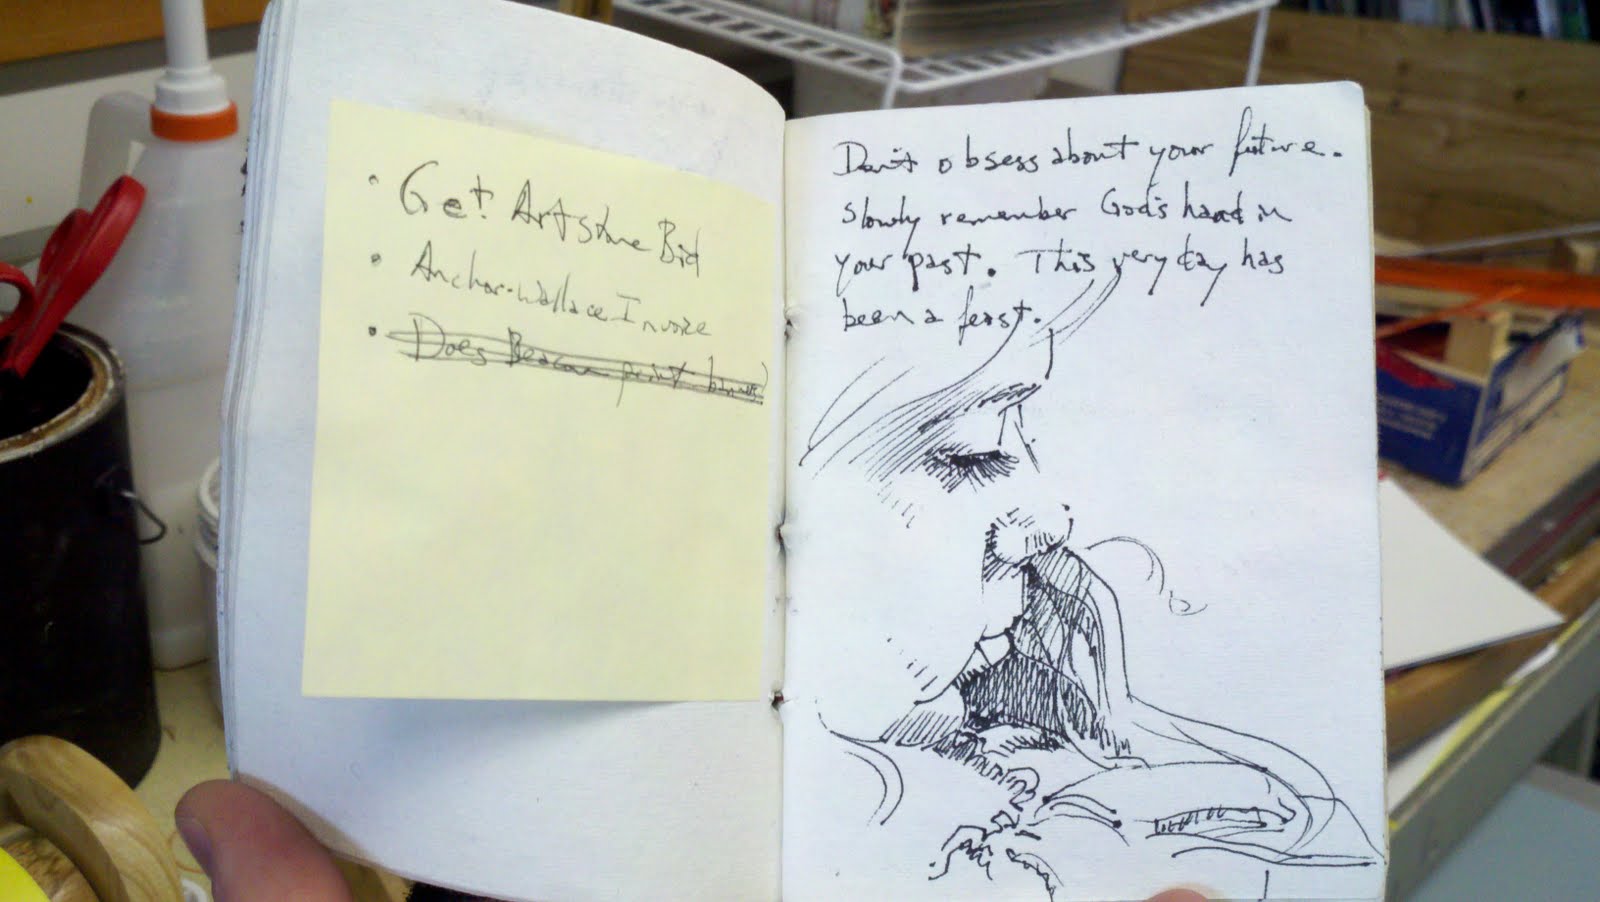 • Get Artstone Bid
• Anchor-Wallace Invoice
• Does Beacon print banners
Don't obsess about your future.
Slowly remember God's hand in
your past. This very day has
been a feast.